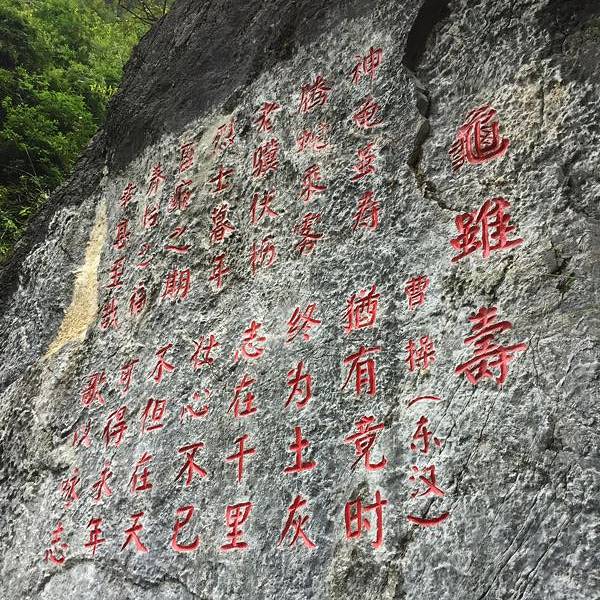 龜雖壽
曹操（东汉）
神龟虽寿 猶有竟时
腾蛇乘雾 终为土灰
老骥伏枥 志在千里
烈士暮年 壮心不已
盈缩之期 不但在天
养怡之福 可得永年
幸甚至哉 歌以咏志